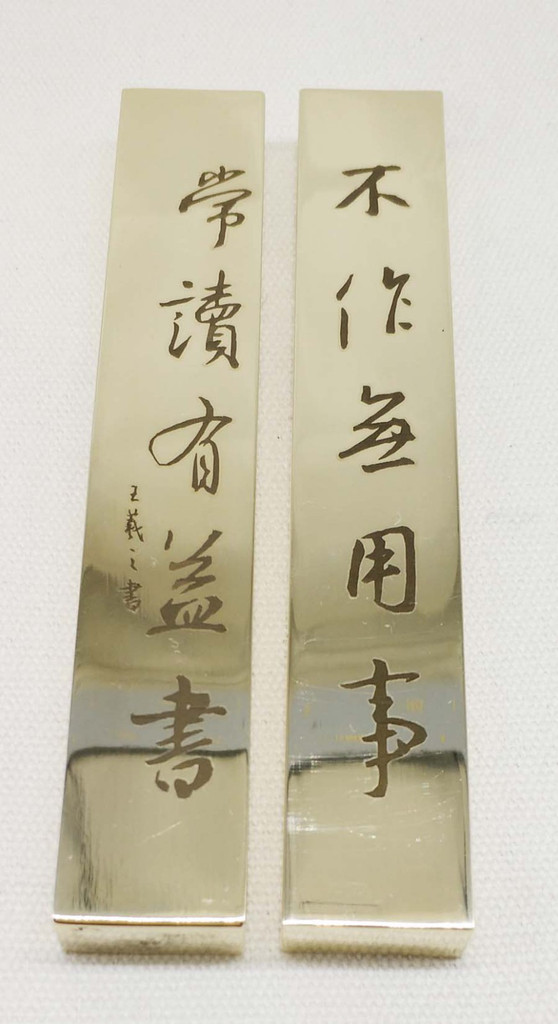 不作無用事
常讀有益書
王羲之書